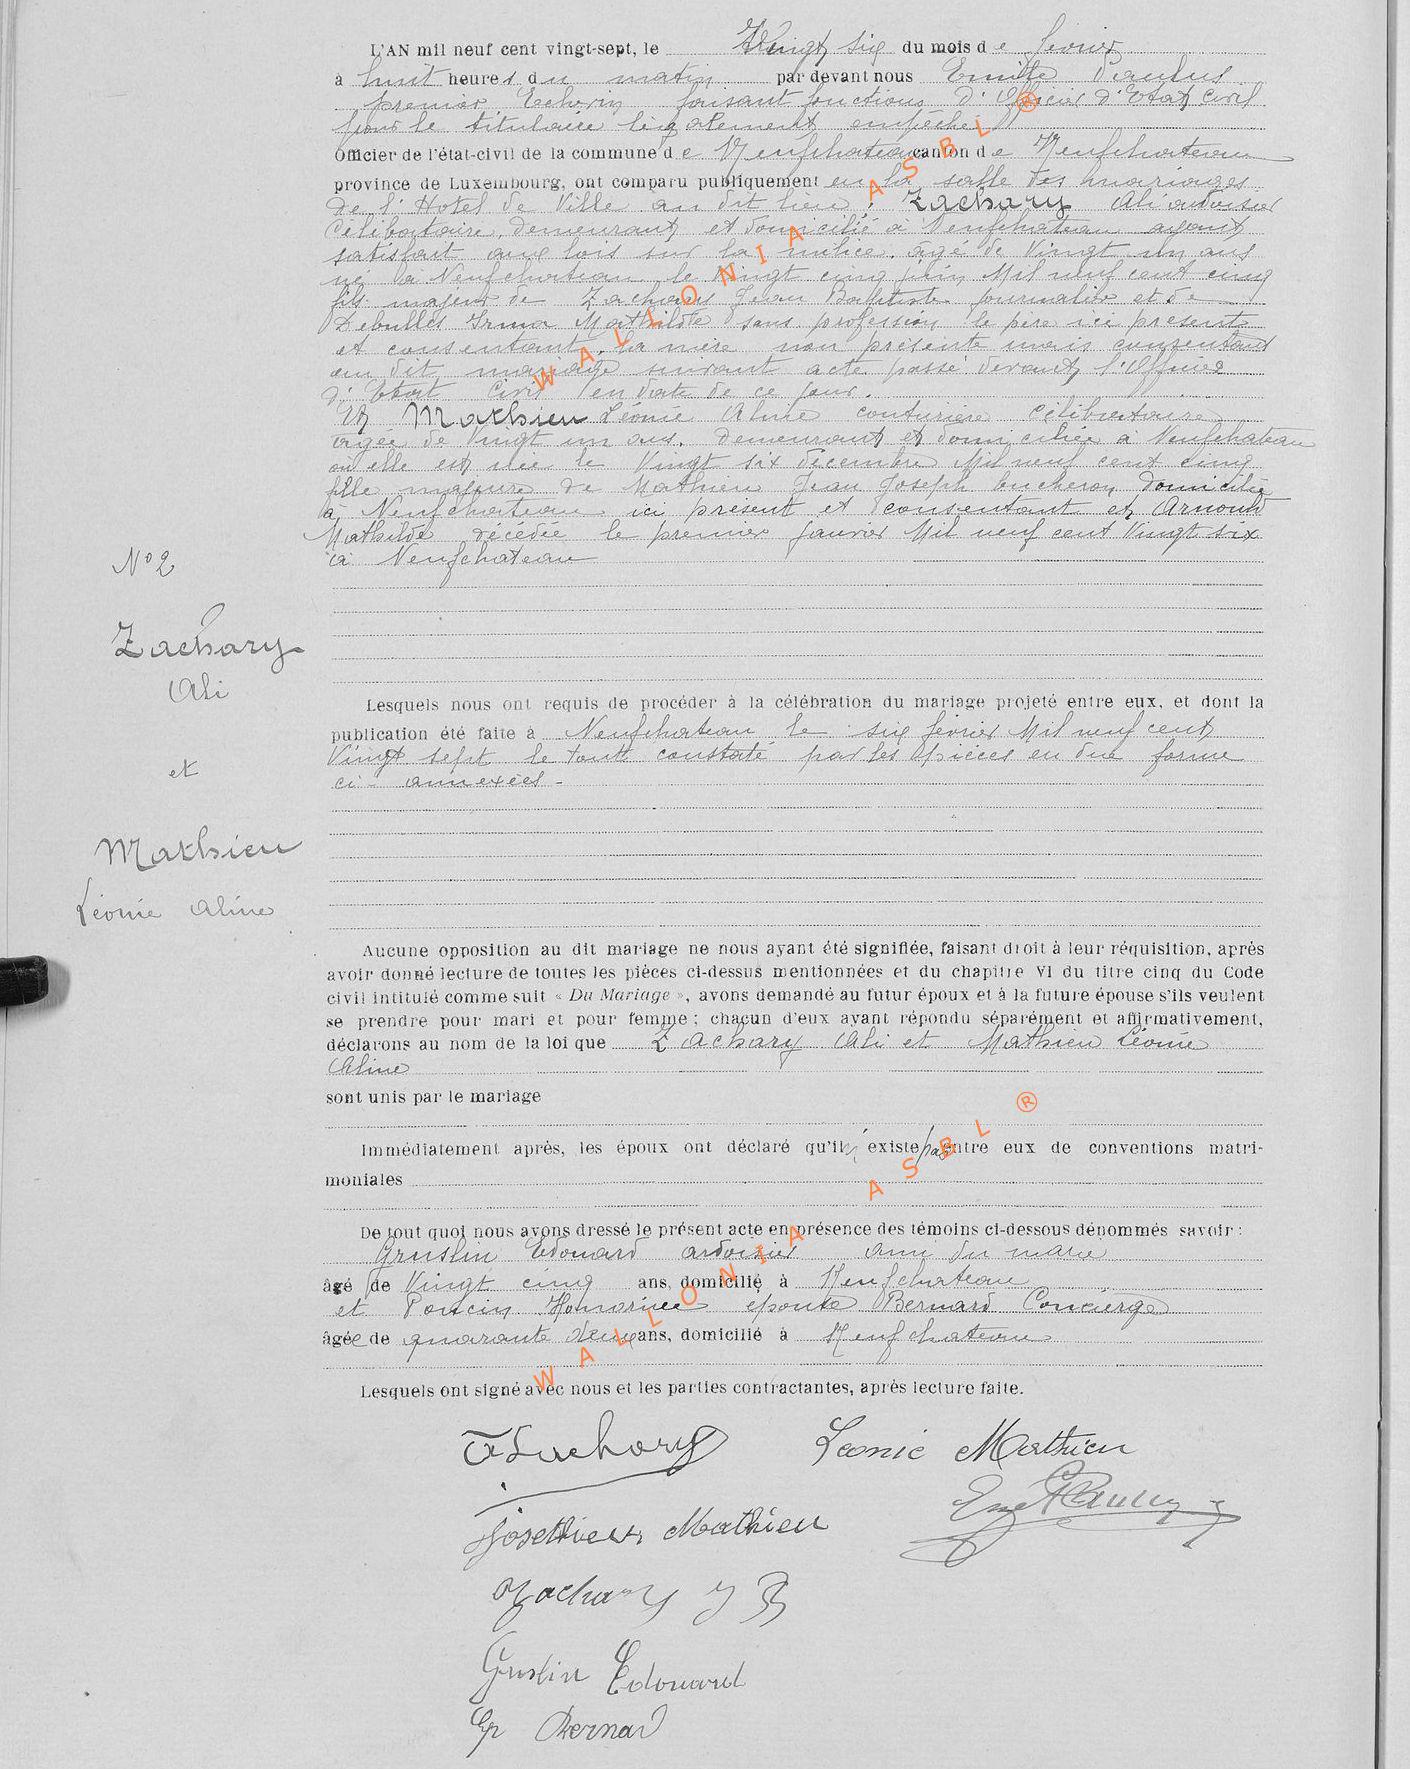 L'AN mil neuf cent vingt-sept, le Vingt six du mois de février
à huit heures du matin par devant nous Emile
premier Echevin faisant fonctions d'Officier d'Etat Civil
pour le titulaire légalement empêché
Officier de l'état-civil de la commune de Neufchateau canton de Neufchateau
province de Luxembourg, ont comparu publiquement en la salle des mariages
de l'Hotel de Ville au dit lieu, Zachary Ali ardoisier
Célibataire, demeurant et domicilié à Neufchateau ayant
satisfait aux lois sur la milice, agé de Vingt un ans
né à Neufchateau le Vingt cinq juin Mil neuf cent cinq
fils majeur de Zachary Jean Baptiste journalier et de
Debulles Irma Mathilde sans profession le père ici présent
et consentant, la mère non présente mais consentant
au dit mariage suivant acte passé devant l'Officier
d'Etat Civil en date de ce jour.
Et Mathieu Léonie Aline couturière célibataire
agée de Vingt un ans, demeurant et domiciliée à Neufchateau
où elle est née le Vingt six décembre Mil neuf cent cinq
fille majeure de Mathieu Jean Joseph bucheron domicilié
à Neufchateau ici présent et consentant et Arnould
Mathilde décédée le premier janvier Mil neuf cent Vingt six
à Neufchateau
N° 2
Zachary
Ali
et
Mathieu
Léonie Aline
Lesquels nous ont requis de procéder à la célébration du mariage projeté entre eux, et dont la
publication été faite à Neufchateau le six février Mil neuf cent
Vingt sept le tout constaté par les pièces en due forme
ci-annexées -
Aucune opposition au dit mariage ne nous ayant été signifiée, faisant droit à leur réquisition, après
avoir donné lecture de toutes les pièces ci-dessus mentionnées et du chapitre VI du titre cinq du Code
civil intitulé comme suit « Du Mariage », avons demandé au futur époux et à la future épouse s'ils veulent
se prendre pour mari et pour femme ; chacun d'eux ayant répondu séparément et affirmativement,
déclarons au nom de la loi que Zachary Ali et Mathieu Léonie
Aline
sont unis par le mariage
Immédiatement après, les époux ont déclaré qu'il n'existe pas entre eux de conventions matri-
moniales
De tout quoi nous avons dressé le présent acte en présence des témoins ci-dessous dénommés savoir :
Gruslin Edouard ardoisier ami du marié
âgé de Vingt cinq ans, domicilié à Neufchateau
et Poncin Honorine épouse Bernard Concierge
âgée de quarante deux ans, domicilié à Neufchateau
Lesquels ont signé avec nous et les parties contractantes, après lecture faite.
A Zachary Léonie Mathieu
Mathieu
Zachary J B
Gruslin Edouard
Ep Bernard
WALLONIA ASBL ®
WALLONIA ASBL ®